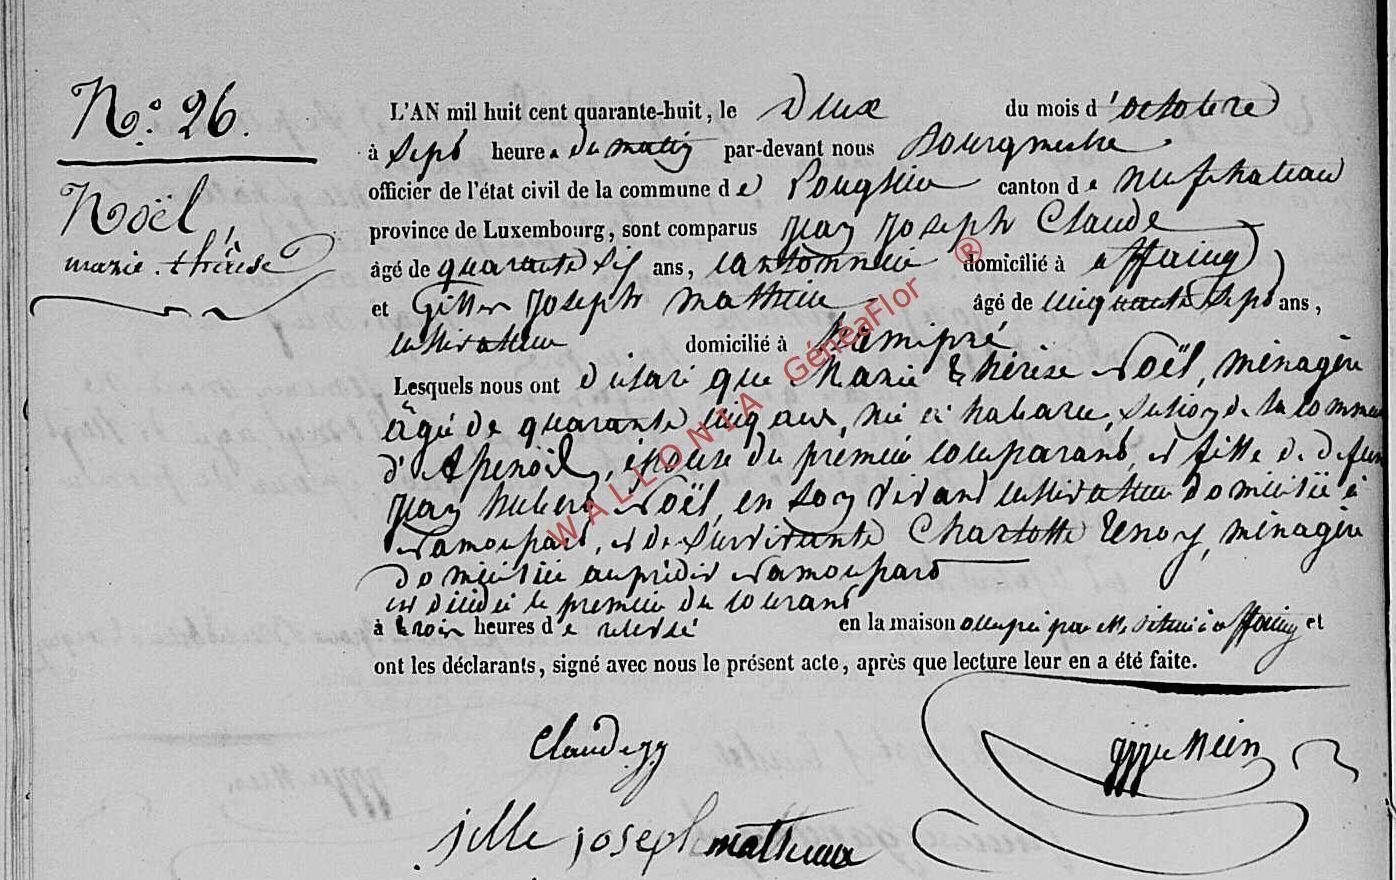 No. 26.
Noël,
marie thérèse
L'AN mil huit cent quarante-huit, le deux du mois d'octobre
à sept heures du matin par-devant nous Bourgmestre
officier de l'état civil de la commune de Longlier canton de Neufchateau
province de Luxembourg, sont comparus jean joseph Claude
âgé de quarante six ans, cantonnier domicilié à offaing
et Gilles joseph mathieu âgé de cinquante sept ans,
cultivateur domicilié à Hamipré
Lesquels nous ont déclaré que Marie Thérèse Noël, ménagère
âgée de quarante cinq ans, née à habaru, section de la commune
d'Assenois, épouse du premier comparant, et fille de défunt
jean hubert Noël, en son vivant cultivateur domicilié à
Namoussart, et de survivante Charlotte, ménagère
domiciliée au prédit Namoussart
est décédée le premier du courant
à trois heures de relevée en la maison occupée par et située à offaing et
ont les déclarants, signé avec nous le présent acte, après que lecture leur en a été faite.
Claude jj
jille joseph mathieux
WALLONIA GénéaFlor ®